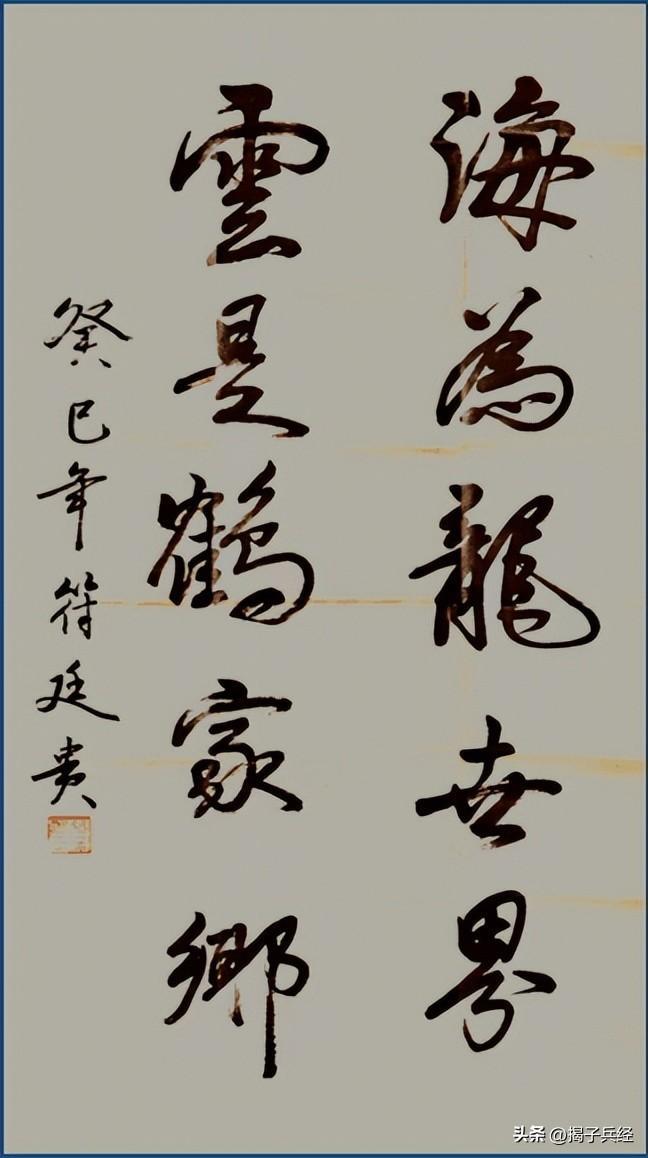 海為龍世界
雲是鶴家鄉
癸巳年符廷贵
头条 @揭子兵经